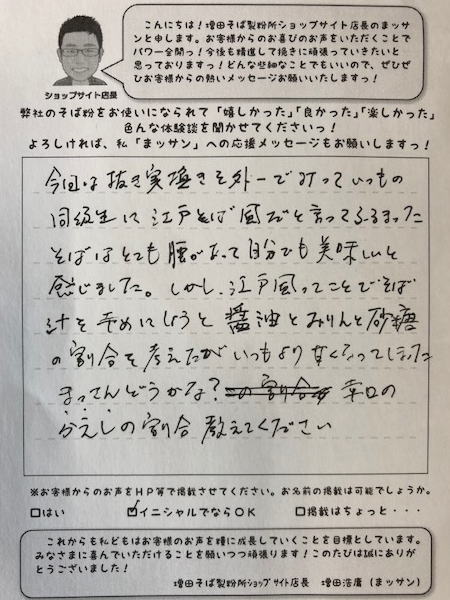 こんにちは！増田そば製粉所ショップサイト店長のまッサ
ンと申します。お客様からのお喜びのお声をいただくことで
パワー全開っ！今後も精進して挽きに頑張っていきたいと
思っておりますっ！どんな些細なことでもいいので、ぜひぜ
ひお客様からの熱いメッセージお願いいたしますっ！
ショップサイト店長
弊社のそば粉をお使いになられて「嬉しかった」「良かった」「楽しかった」
色んな体験談を聞かせてくださいっ！
よろしければ、私「まッサン」への応援メッセージもお願いしますっ！
今回は抜き実挽きを外一で打っていつもの
同級生に江戸そば風だと言ってふるまった
そばはとても腰があって自分でも美味しいと
感じました。しかし、江戸風ってことでそば
汁を辛めにしようと醤油とみりんと砂糖
の割合を考えたがいつもより甘くなってしまった
まっさんどうかな？ 辛口の
かえしの割合 教えてください
※お客様からのお声をHP等で掲載させてください。お名前の掲載は可能でしょうか。
□はい ☑イニシャルでならOK □掲載はちょっと・・・
これからも私どもはお客様のお声を糧に成長していくことを目標としています。
みなさまに喜んでいただけることを願いつつ頑張ります！このたびは誠にありが
とうございました！
増田そば製粉所ショップサイト店長 増田浩庸（まッサン）